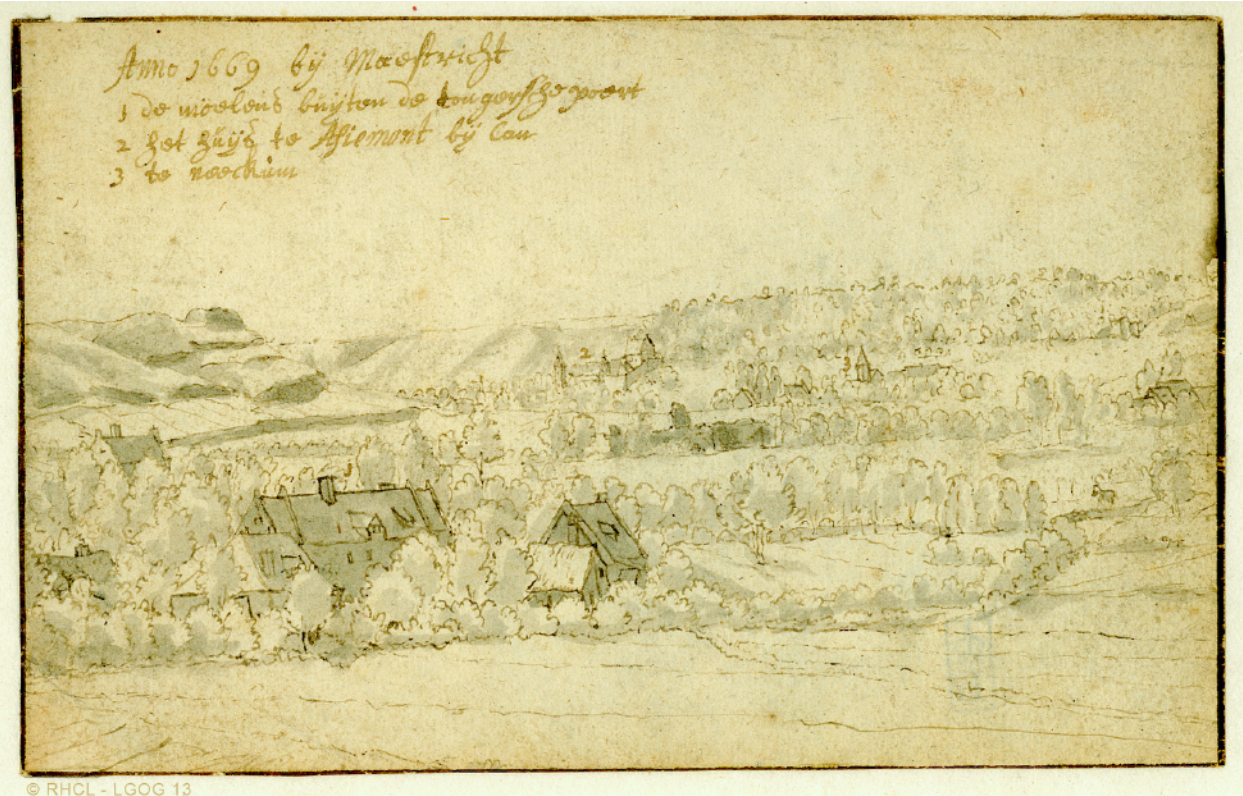 Anno 1669 bij Maestricht
1 de moelens buijten de tongersche poert
2 het huijs te Asiemont bij Can
3 te neeckum
2
3
1
© RHCL - LGOG 13